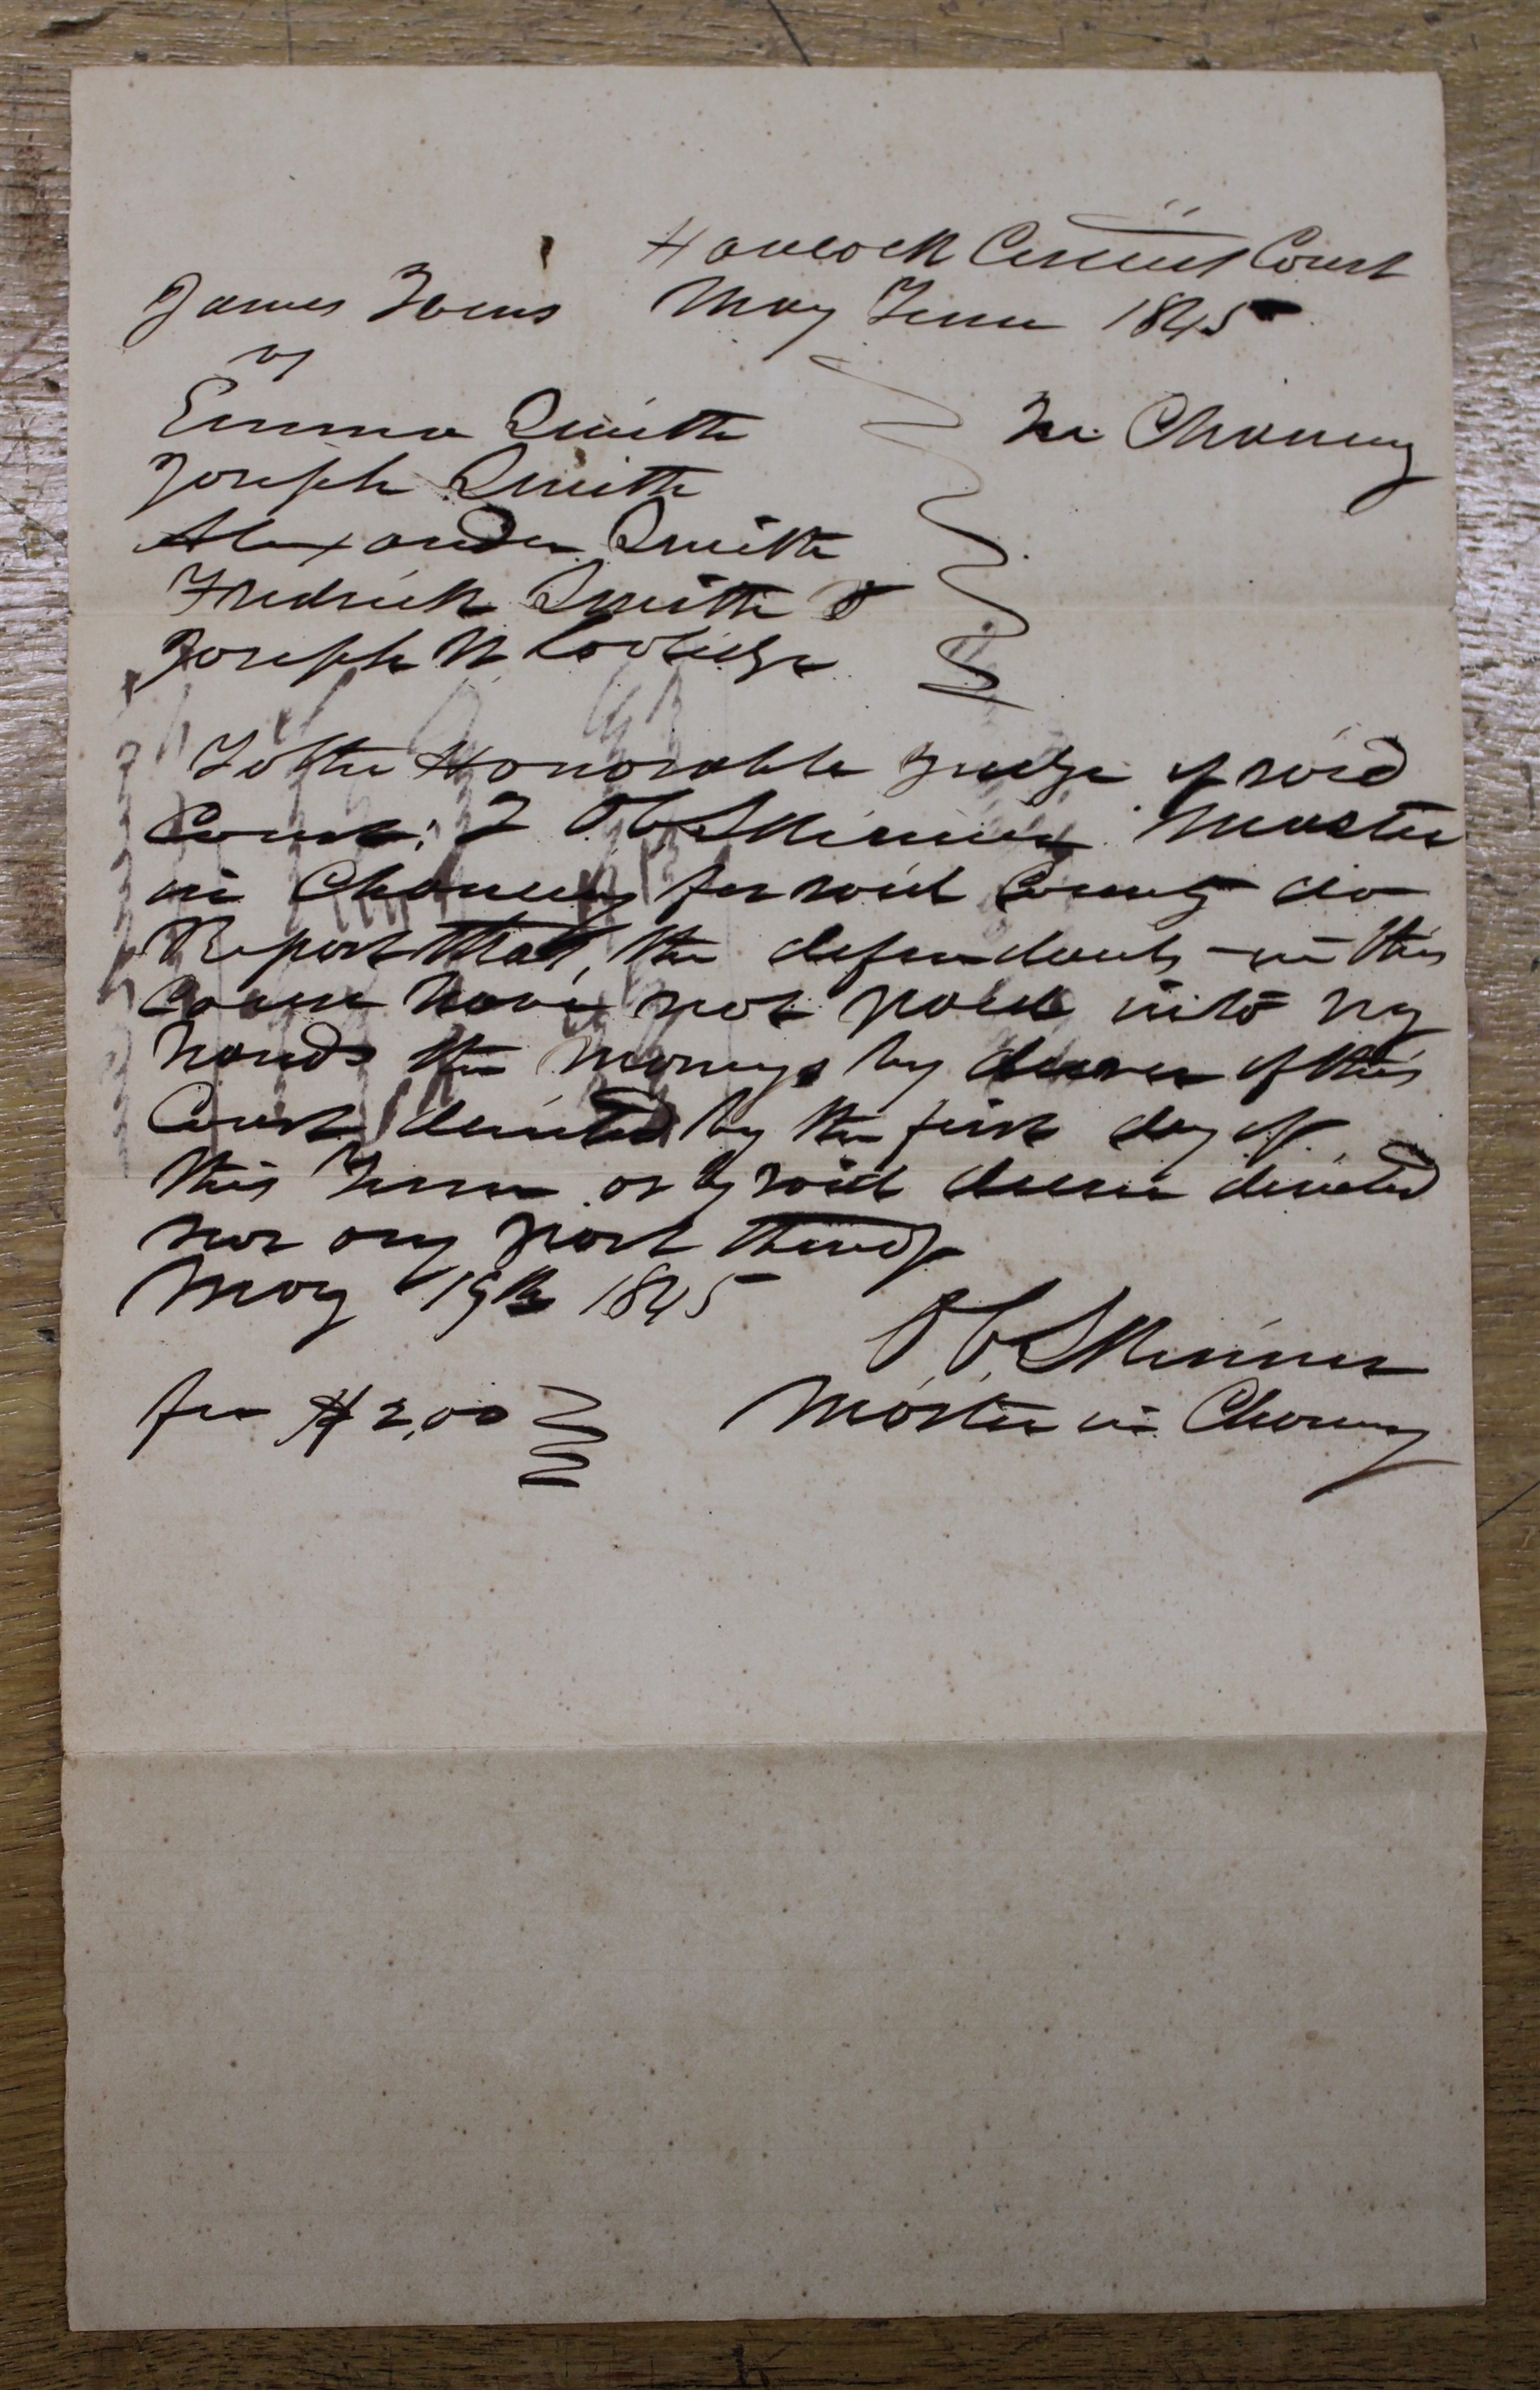 Hancock Circuit Court
James Ivins May Term 1845
vs
Emma Smith In Chancery
Joseph Smith
Alexander Smith
Fredrick Smith &
Joseph W Coolidge
To the Honorable Judge of said
Court: I O C Skinner Master
in Chancery for said County do
Report that, the defendants in this
Cause have not paid into my
hands the moneys by decree of this
Court directed by the first day of
this Term as by said decree directed
nor any part thereof
May 19th 1845
O C Skinner
fee $2,00 Master in Chancery